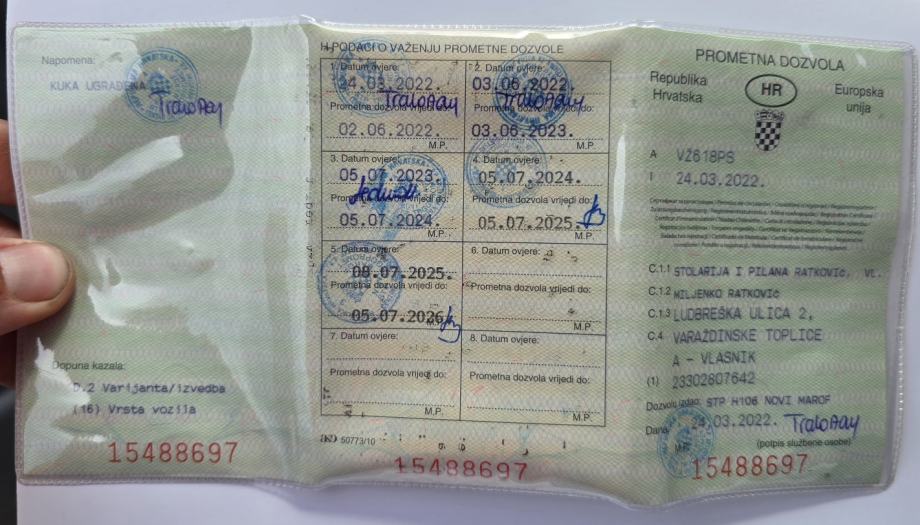 Napomena:
KUKA UGRAĐENA
Dopuna kazala:
D.2 Varijanta/izvedba
(16) Vrsta vozila
15488697
H PODACI O VAŽENJU PROMETNE DOZVOLE
1. Datum ovjere:
24.03.2022.
Prometna dozvola vrijedi do:
02.06.2022.
M.P.
2. Datum ovjere:
03.06.2022.
Prometna dozvola vrijedi do:
03.06.2023.
M.P.
3. Datum ovjere:
05.07.2023.
Prometna dozvola vrijedi do:
05.07.2024.
M.P.
4. Datum ovjere:
05.07.2024.
Prometna dozvola vrijedi do:
05.07.2025.
M.P.
5. Datum ovjere:
08.07.2025.
Prometna dozvola vrijedi do:
05.07.2026.
M.P.
6. Datum ovjere:
Prometna dozvola vrijedi do:
M.P.
7. Datum ovjere:
Prometna dozvola vrijedi do:
M.P.
8. Datum ovjere:
Prometna dozvola vrijedi do:
M.P.
50773/10
15488697
PROMETNA DOZVOLA
Republika
Hrvatska
HR
Europska
unija
A VŽ618PS
I 24.03.2022.
C.1.1 STOLARIJA I PILANA RATKOVIĆ, VL.
C.1.2 MILJENKO RATKOVIĆ
C.1.3 LUDBREŠKA ULICA 2,
C.4 VARAŽDINSKE TOPLICE
A - VLASNIK
(1) 23302807642
Dozvolu izdao: STP H106 NOVI MAROF
Dana 24.03.2022.
M.P.
(potpis službene osobe)
15488697